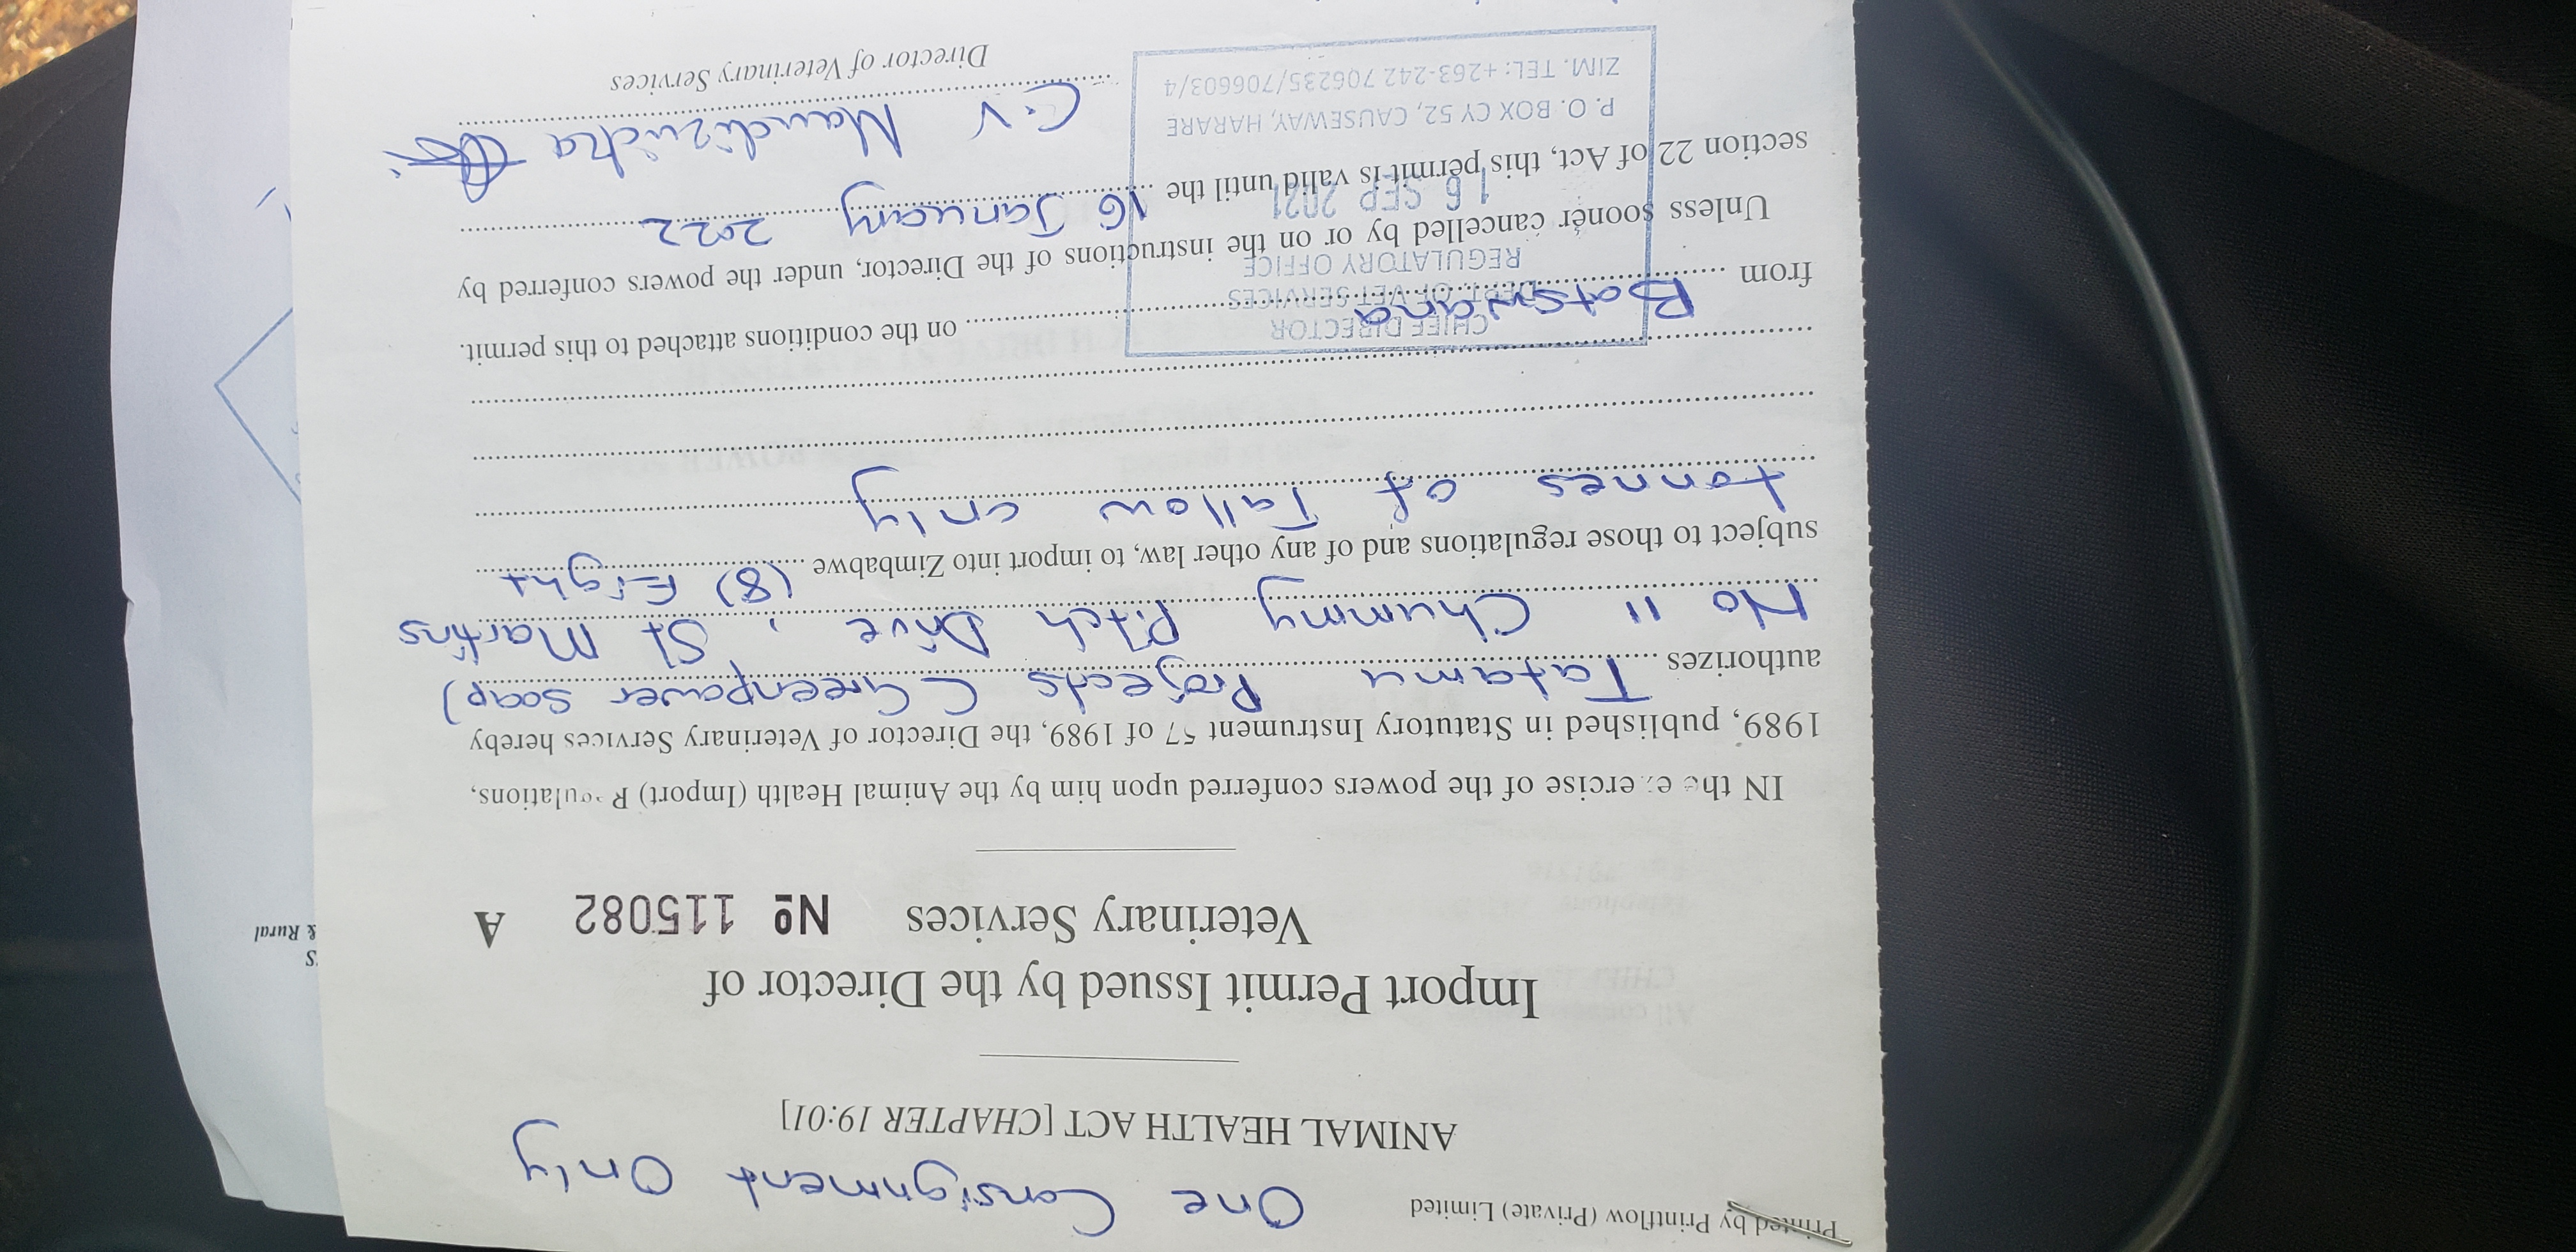 Printed by Printflow (Private) Limited
One Consignment Only
ANIMAL HEALTH ACT [CHAPTER 19:01]
Import Permit Issued by the Director of
Veterinary Services
Nº 115082 A
IN the exercise of the powers conferred upon him by the Animal Health (Import) Regulations,
1989, published in Statutory Instrument 57 of 1989, the Director of Veterinary Services hereby
authorizes Tatamu Projects (Greenpower Soap)
No 11 Chummy Pitch Drive, St Martins
subject to those regulations and of any other law, to import into Zimbabwe (8) Eight
tonnes of Tallow only
from Botswana on the conditions attached to this permit.
Unless sooner cancelled by or on the instructions of the Director, under the powers conferred by
section 22 of Act, this permit is valid until the 16 January 2022
C.V
Director of Veterinary Services
CHIEF DIRECTOR
DEPT. OF VET SERVICES
REGULATORY OFFICE
16 SEP 2021
P. O. BOX CY 52, CAUSEWAY, HARARE
ZIM. TEL: +263-242 706235/706603/4
& Rural